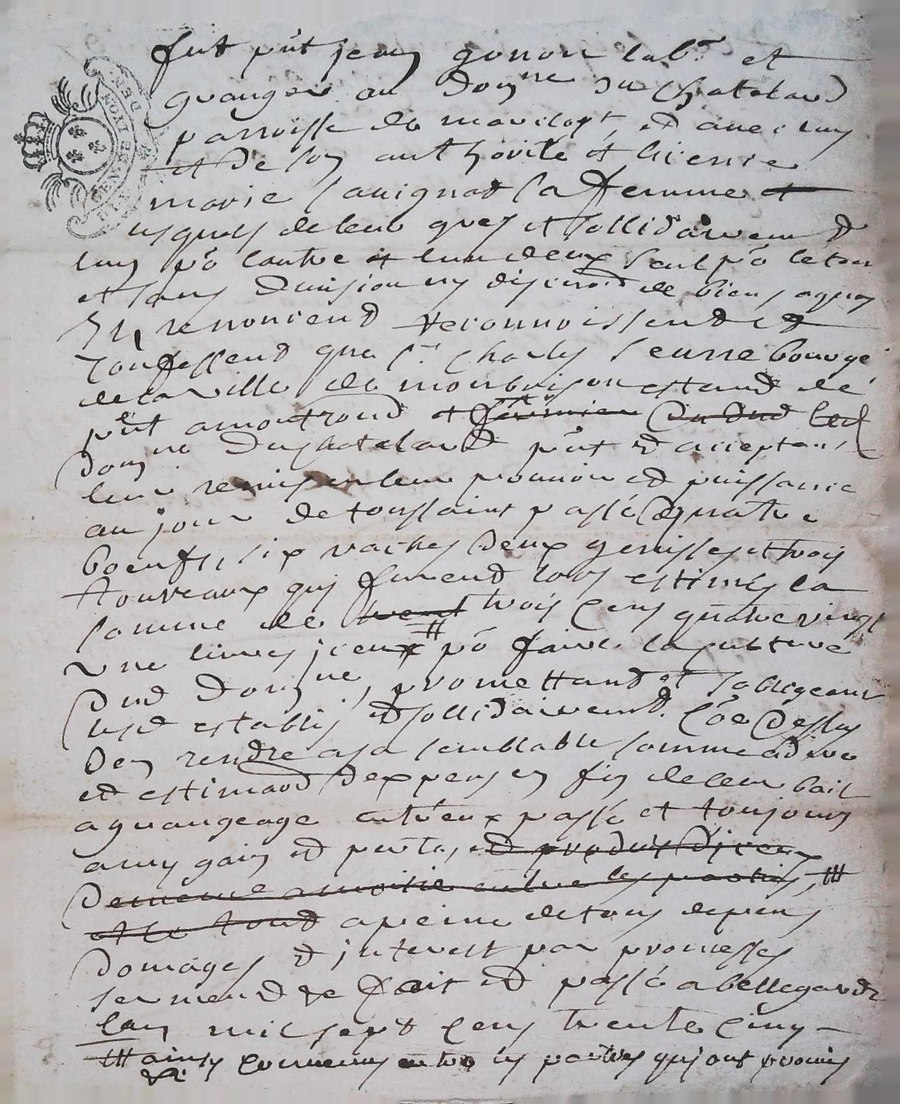 fut pñt jean gonon lab.r et
granger au dom.ne du chatelard
parroisse de marclopt, et avec luy
et de son authorité et licence
marie sauignat sa femme et
lesquels de leur grez et sollidairement
lun po lautre et lun deux seul po le tout
et sans division ny discution de biens
renoncent reconnoissent et
confessent que s.r Charles seurre bourge
de la ville de monbrison estant de
pñt a montrond et fermier dudit led
dom.ne du chatelard pñt et acceptant
leur remis en leur pouvoir et puissance
au jour de toussaint passé quatre
boeufs, six vaches deux genisses et trois
toureaux qui furent lors estimés la
somme de vent trois cens quatre vingt
une livres iceux po faire la culture
dud dom.ne, promettant et sobligeant
lesd establis sollidairement coe dessus
den rendre a sa semblable somme
et estimaon dexpers en fin de leur bail
a grangeage entreux passé et toujours
a my gain et perte, et produit diceux
demeure a moitié entre les parties,
et le tout a peine de tous depens
domages et interest par promesses
serment de fait et passé a bellegarde
lan mil sept cens trente cinq
ainsy convenu entre les parties qui ont promis
GEN DE LION